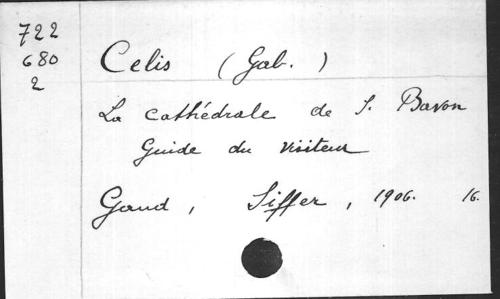 722
680
2
Celis (Gab.)
La cathédrale de S. Bavon
Guide du visiteur
Gand, Siffer, 1906. 16.